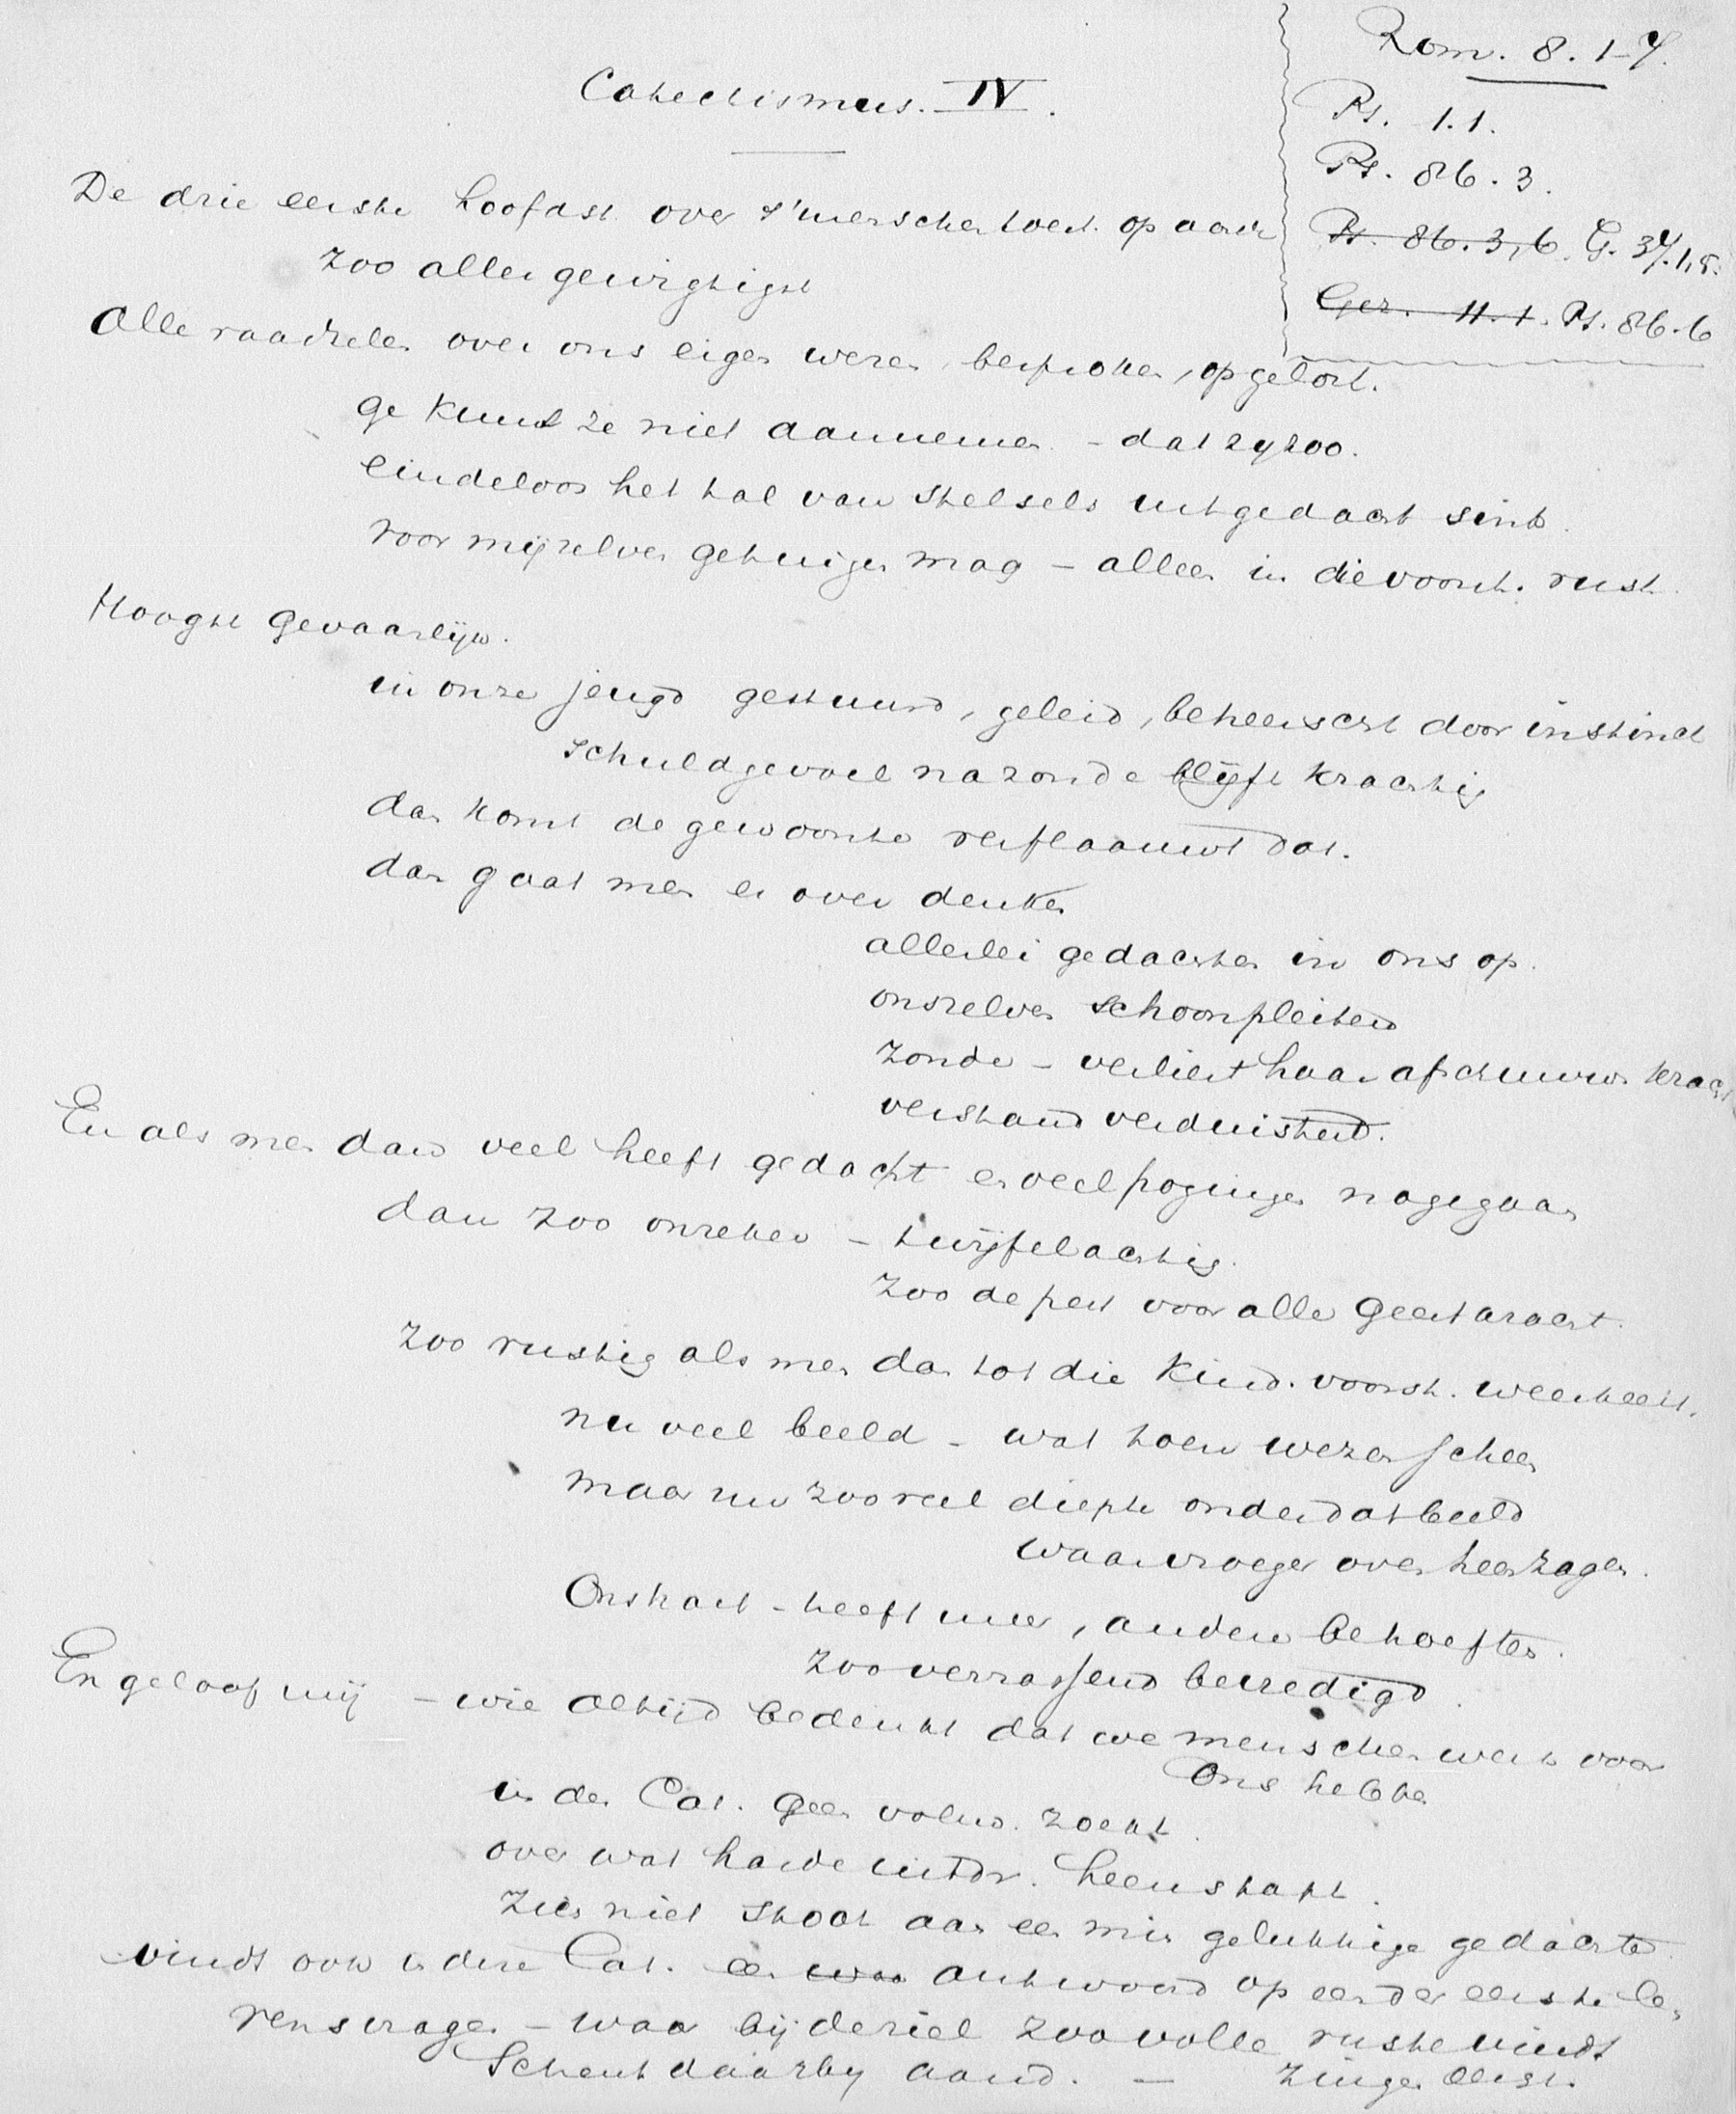 Rom. 8. 1-7.
Catechismus. IV.
Ps. 1.1.
Ps. 86. 3.
Ps. 86. 3,6. G. 37.1,5.
Gez. 11. 1. Ps. 86.6
De drie eerste hoofdst. over s'menschen toest. op aarde
zoo aller gewigtigst
Alle raadselen over ons eigen wezen, besproken, opgelost.
ge kunt ze niet aannemen - dat zij zoo.
eindeloos het tal van stelsels uitgedacht sinds.
voor mijzelven getuigen mag - alleen in die voorst. rust.
Hoogst gevaarlijk.
in onze jeugd gestuurd, geleid, beheerscht door instinct
schuldgevoel na zonde blijft krachtig
dan komt de gewoonte verflaauwt dat.
dan gaat men er over denken
allerlei gedachten in ons op.
onszelven schoonpleiten
zonde - verliest haar afschuw. kracht
verstand verduisterd.
En als men dan veel heeft gedacht en veel pogingen nagegaan
dan zoo onzeker - twijfelachtig.
zoo de pest voor alle geestkracht.
zoo rustig als men dan tot die kind. voorst. weerkeert.
nu veel beeld - wat toen wezen scheen
maar nu zooveel diepte onder dat beeld
waar vroeger over heen zagen.
Ons hart - heeft meer, andere behoeften.
zoo verrassend bevredigd.
En geloof mij - wie altijd bedenkt dat we menschen werk voor
ons hebben
in den Cat. geen volm. zoekt.
over wat harde uitdr. heenstapt.
zich niet stoot aan een min gelukkige gedachte
vindt ook in deze Cat. een antwoord op een der eerste le-
vensvragen - waar bij de ziel zoo volle ruste vindt
Schenk daarbij aand. - Zingen eerst.